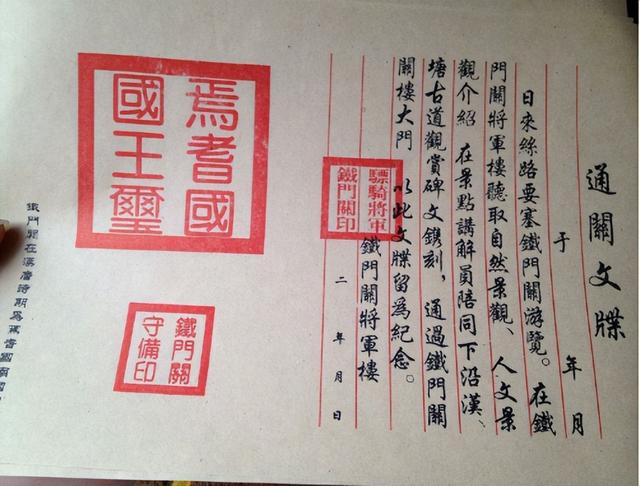 通關文牒
于 年 月
日來絲路要塞鐵門關游覽。在鐵
門關將軍樓聽取自然景觀、人文景
觀介紹 在景點講解員陪同下沿漢、
塘古道觀賞碑文鐫刻，通過鐵門關
關樓大門 以此文牒留爲紀念。
鐵門關將軍樓
二 年 月 日
驃騎將軍
鐵門關印
焉耆國
國王璽
鐵門關
守備印
鐵門關在漢唐時期爲焉耆國南國